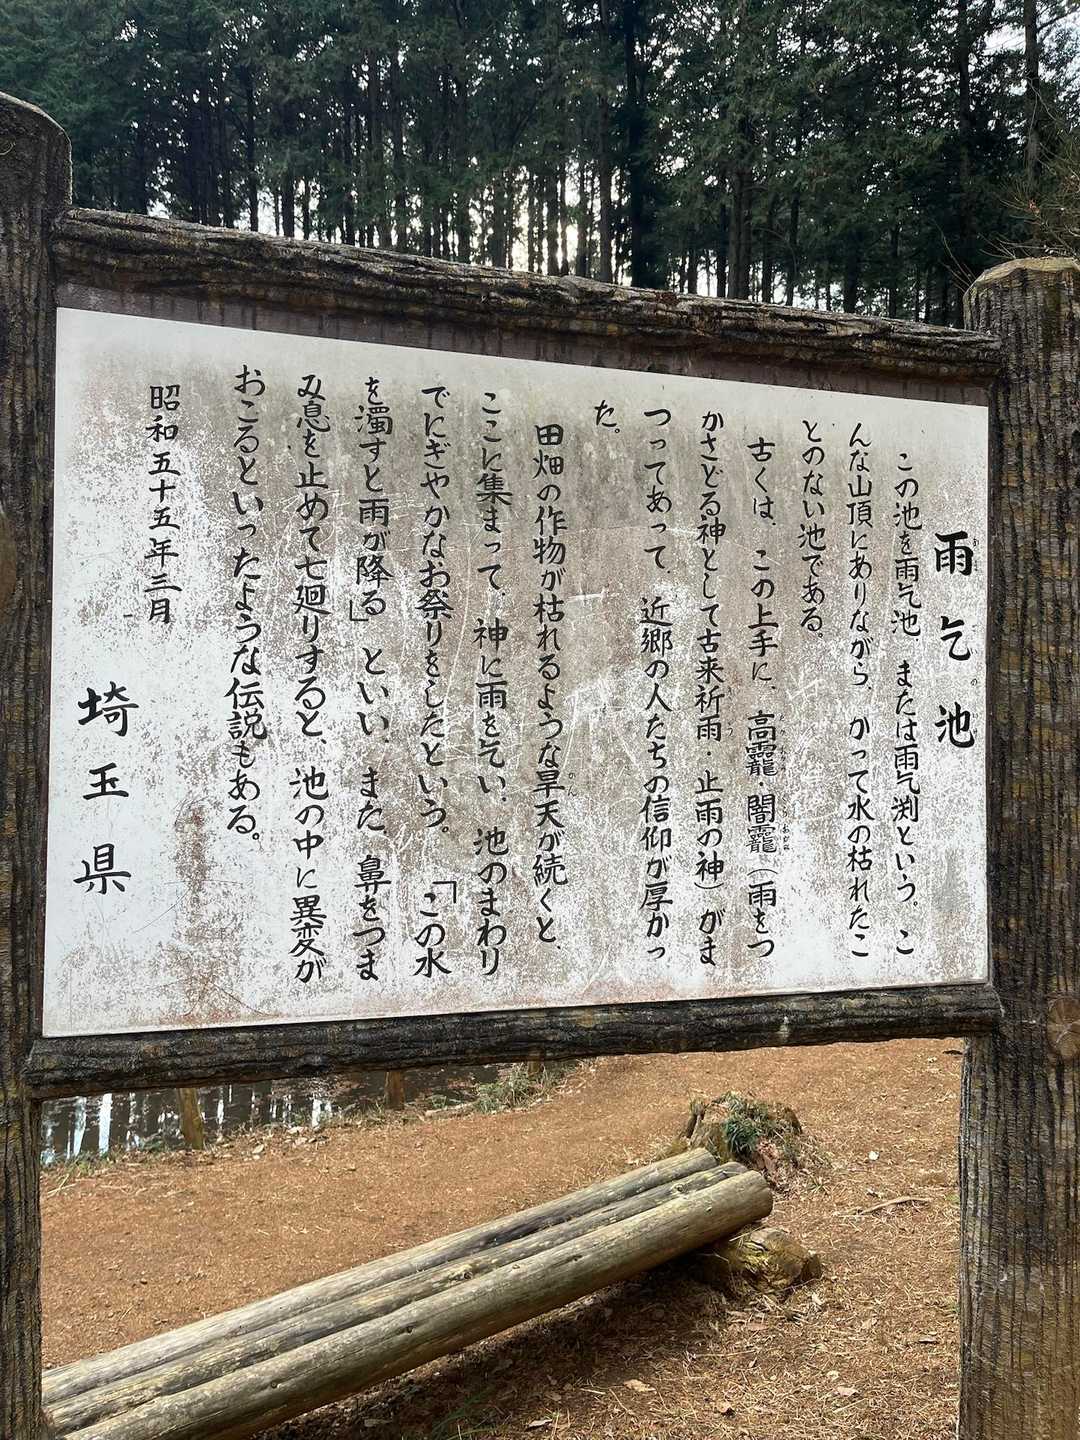 雨乞池
この池を雨乞池　または雨乞渕という。こ
んな山頂にありながら、かって水の枯れたこ
とのない池である。
古くは、この上手に、高靇・闇靇（雨をつ
かさどる神として古来祈雨・止雨の神）がま
つってあって、近郷の人たちの信仰が厚かっ
た。
田畑の作物が枯れるような旱天が続くと、
ここに集まって、神に雨を乞い、池のまわり
でにぎやかなお祭りをしたという。「この水
を濁すと雨が降る」といい、また、鼻をつま
み息を止めて七廻りすると、池の中に異変が
おこるといったような伝説もある。
昭和五十五年三月
埼玉県